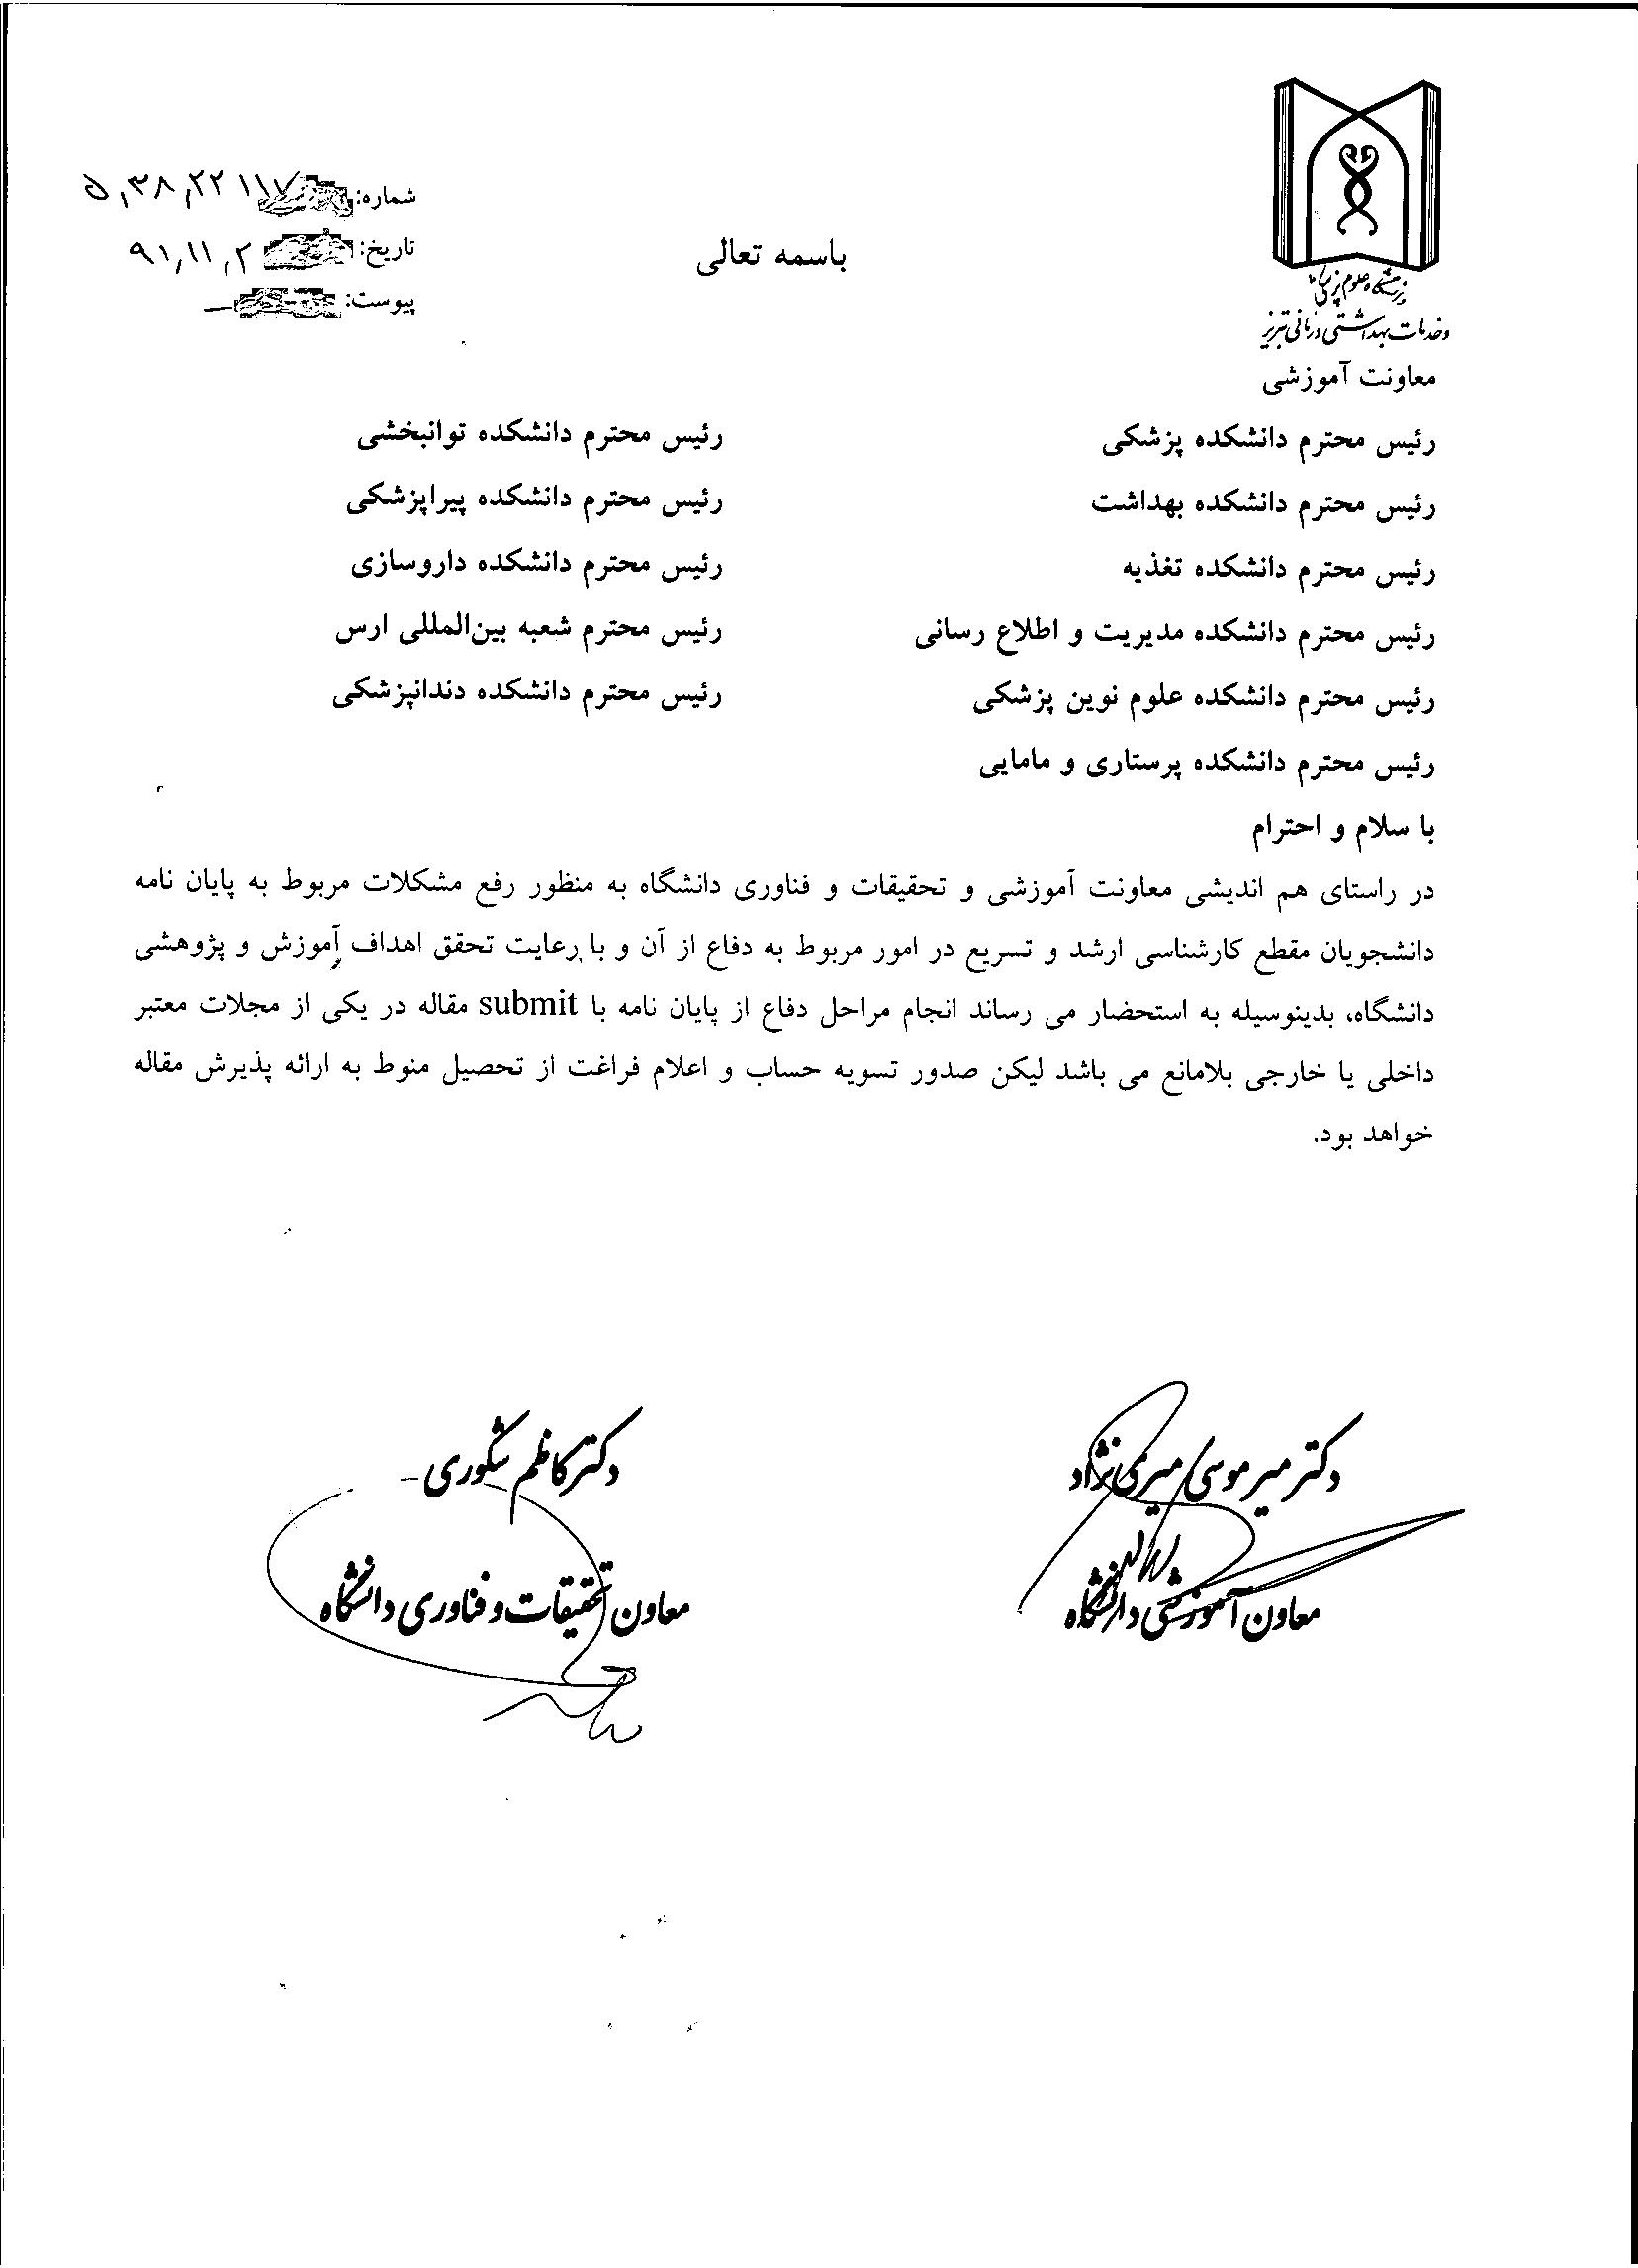 باسمه تعالی
شماره: ۵٫۳۸٫۲۲۱۱۷
تاریخ: ۹۱٫۱۱٫۲
پیوست: —
دانشگاه علوم پزشکی
و خدمات بهداشتی درمانی تبریز
معاونت آموزشی
رئیس محترم دانشکده پزشکی
رئیس محترم دانشکده بهداشت
رئیس محترم دانشکده تغذیه
رئیس محترم دانشکده مدیریت و اطلاع رسانی
رئیس محترم دانشکده علوم نوین پزشکی
رئیس محترم دانشکده پرستاری و مامایی
رئیس محترم دانشکده توانبخشی
رئیس محترم دانشکده پیراپزشکی
رئیس محترم دانشکده داروسازی
رئیس محترم شعبه بین‌المللی ارس
رئیس محترم دانشکده دندانپزشکی
با سلام و احترام
در راستای هم اندیشی معاونت آموزشی و تحقیقات و فناوری دانشگاه به منظور رفع مشکلات مربوط به پایان نامه
دانشجویان مقطع کارشناسی ارشد و تسریع در امور مربوط به دفاع از آن و با رعایت تحقق اهداف آموزش و پژوهشی
دانشگاه، بدینوسیله به استحضار می رساند انجام مراحل دفاع از پایان نامه با submit مقاله در یکی از مجلات معتبر
داخلی یا خارجی بلامانع می باشد لیکن صدور تسویه حساب و اعلام فراغت از تحصیل منوط به ارائه پذیرش مقاله
خواهد بود.
دکتر میر موسی میری نژاد
معاون آموزشی دانشگاه
دکتر کاظم شکوری
معاون تحقیقات و فناوری دانشگاه